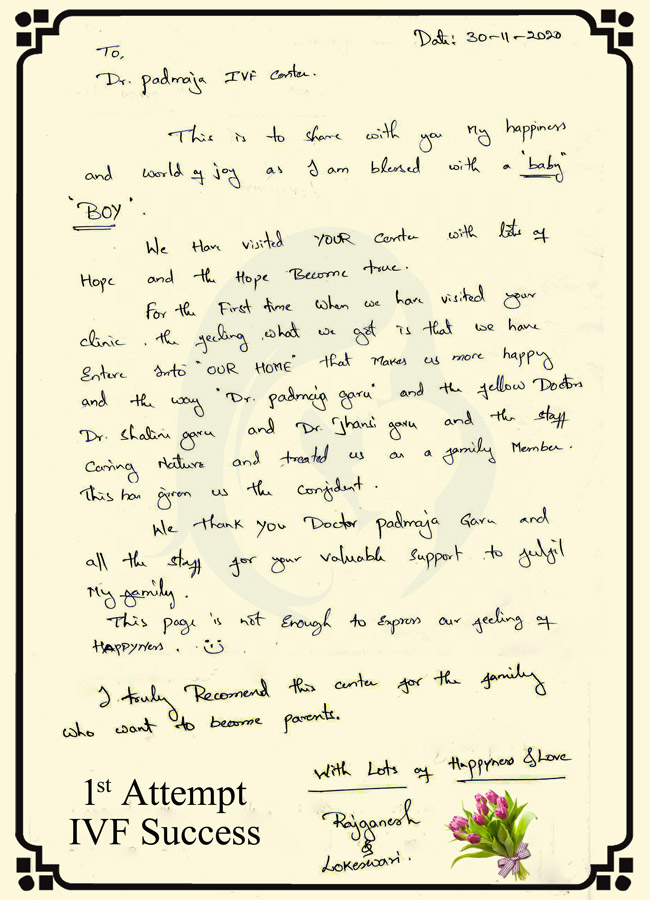 Date: 30-11-2020
To,
Dr. padmaja IVF Center.
This is to share with you My happiness
and world of joy as I am blessed with a "baby"
"BOY".
We Have visited YOUR Center with lots of
Hope and the Hope Become true.
For the First time When we have visited your
clinic. the feeling what we got is that we have
Entere Into "OUR HOME" that Makes us more happy
and the way "Dr. padmaja garu" and the fellow Doctors
Dr. Shalini garu and Dr. Jhansi garu and the staff
Caring Nature and treated us as a family Member.
This has given us the confident.
We Thank You Doctor padmaja Garu and
all the staff for your valuable support to fulfil
My family.
This page is not Enough to Express our feeling of
HAPPYness.
I truly Recomend this center for the family
who want to become parents.
With Lots of Happyness & Love
Rajganesh
&
Lokeswari.
1st Attempt
IVF Success